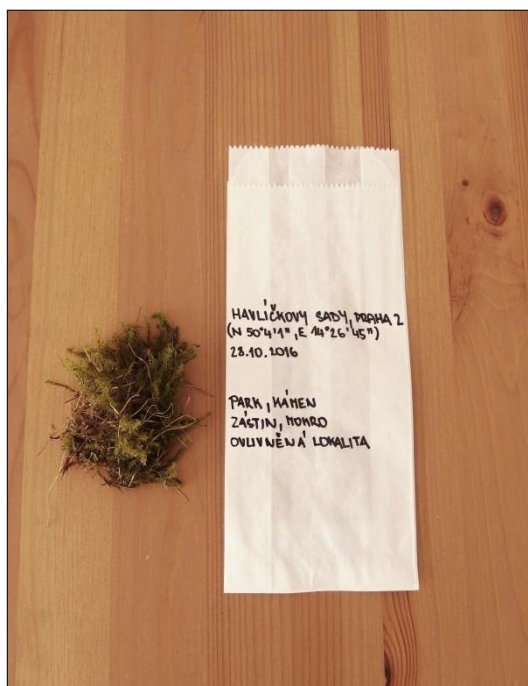 HAVLÍČKOVY SADY, PRAHA 2
(N 50°4'1", E 14°26'45")
28.10.2016
PARK, KÁMEN
ZÁSTIN, MOKRO
OVLIVNĚNÁ LOKALITA